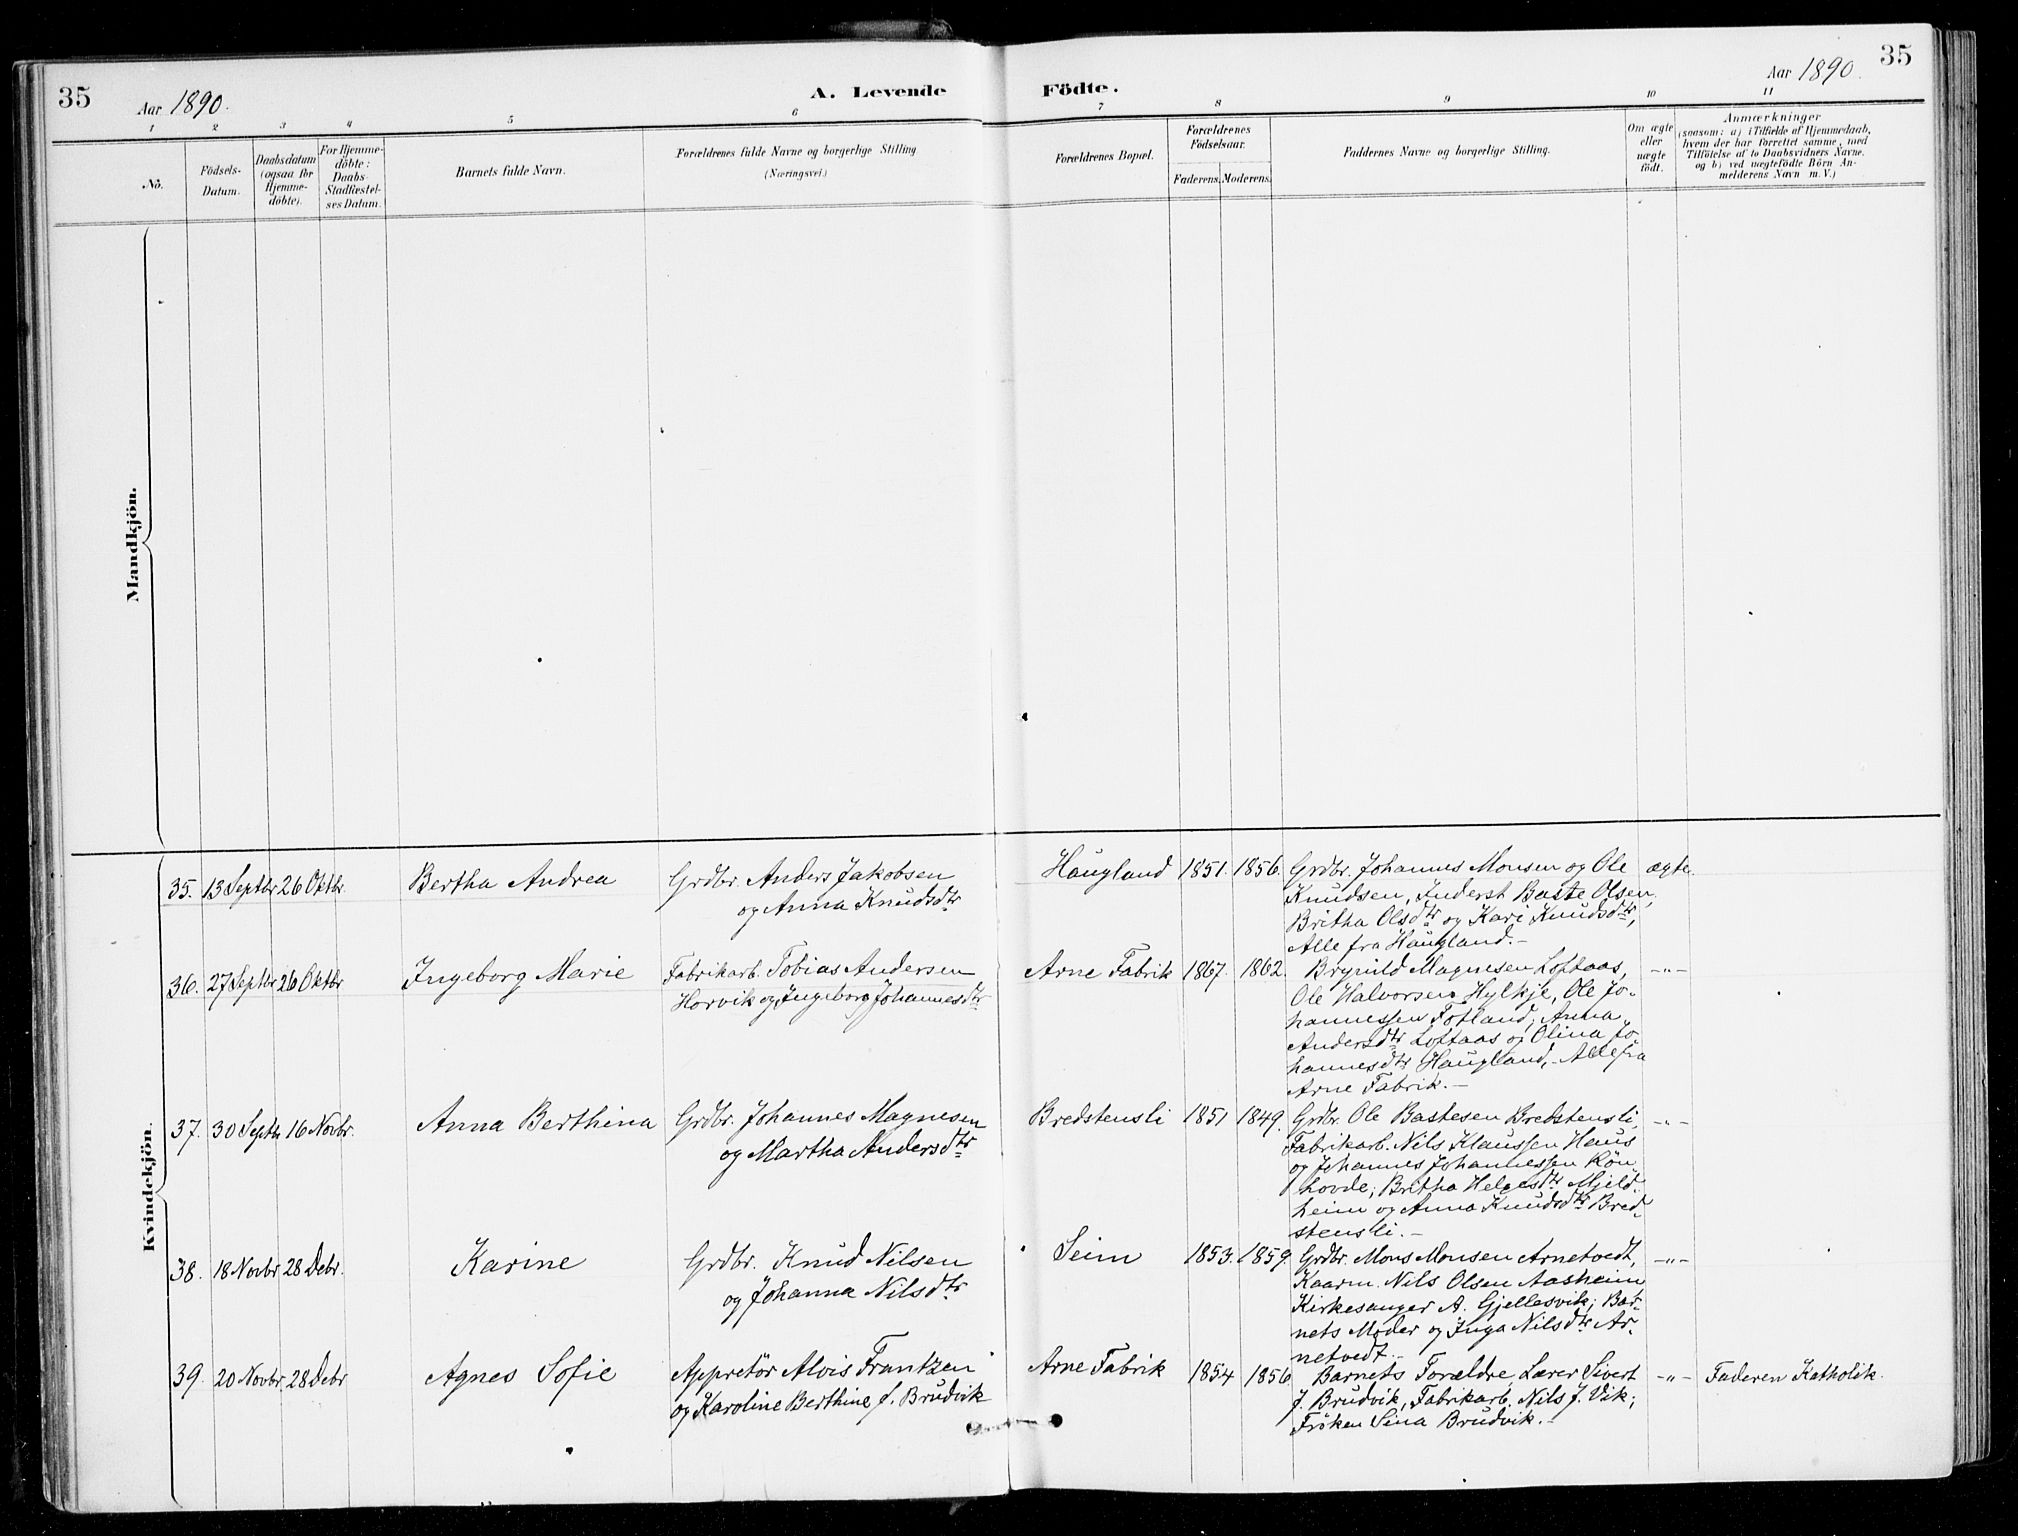 35
Aar 1890.
A. Levende
Födte.
Aar 1890.
35
1 2 3 4 5 6 7 8 9 10 11
No.
Födsels-
Datum.
Daabsdatum
(ogsaa for
Hjemme-
döbte).
For Hjemme-
döbte:
Daabs-
Stadfæstel-
ses Datum.
Barnets fulde Navn.
Forældrenes fulde Navne og borgerlige Stilling.
(Næringsvei.)
Forældrenes Bopæl.
Forældrenes
Födselsaar.
Faderens. Moderens.
Faddernes Navne og borgerlige Stilling.
Om ægte
eller
uægte
födt.
Anmærkninger
(saasom: a) i Tilfælde af Hjemmedaab,
hvem der har forrettet samme, med
Tilföielse af to Daabsvidners Navne.
og b) ved uægtefödte Börn An-
melderens Navn m. V.)
Mandkjön.
Kvindekjön.
35. 13 Septbr 26 Oktbr. Bertha Andrea Grdbr. Anders Jakobsen
og Anna Knudsdtr
Haugland 1851. 1856. Grdbr. Johannes Monsen og Ole ægte.
Knudsen, Inderst Baste Olsen,
Britha Olsdtr og Kari Knudsdtr,
Alle fra Haugland.-
36. 27 Septbr 26 Oktbr Ingeborg Marie Fabrikarb. Tobias Andersen
Horvik og Ingeborg Johannesdtr
Arne Fabrik 1867. 1862. Brynild Magnesen Loftaas, -"-
Ole Halvorsen Hylkje, Ole Jo-
hannessen Totland, Anna
Andersdtr Loftaas og Olina Jo-
hannesdtr Haugland,- Alle fra
Arne Fabrik.-
37. 30 Septb 16 Novbr. Anna Berthina Grdbr. Johannes Magnesen
og Martha Andersdtr
Bredstensli 1851 1849. Grdbr. Ole Bastesen Bredstensli, -"-
Fabrikarb. Nils Klaussen Haus
og Johannes Johannessen Rön-
hovde; Britha Helgesdtr Mjeld-
heim og Anna Knudsdtr Bred-
stensli.-
38. 18 Novbr 28 Debr. Karine Grdbr. Knud Nilsen
og Johanna Nilsdtr
Seim 1853. 1859. Grdbr. Mons Monsen Arnetvedt, -"-
Kaarm. Nils Olsen Aasheim
Kirkesanger A. Gjellesvik; Bar-
nets Moder og Inga Nilsdtr Ar-
netvedt.-
39. 20 Novbr 28 Debr Agnes Sofie Appretör Alvis Frantzen
og Karoline Berthine f. Brudvik
Arne Fabrik 1854 1856 Barnets Forældre, Lærer Sivert -"- Faderen Katholik.
J. Brudvik, Fabrikarb. Nils J. Vik;
Fröken Sina Brudvik.-